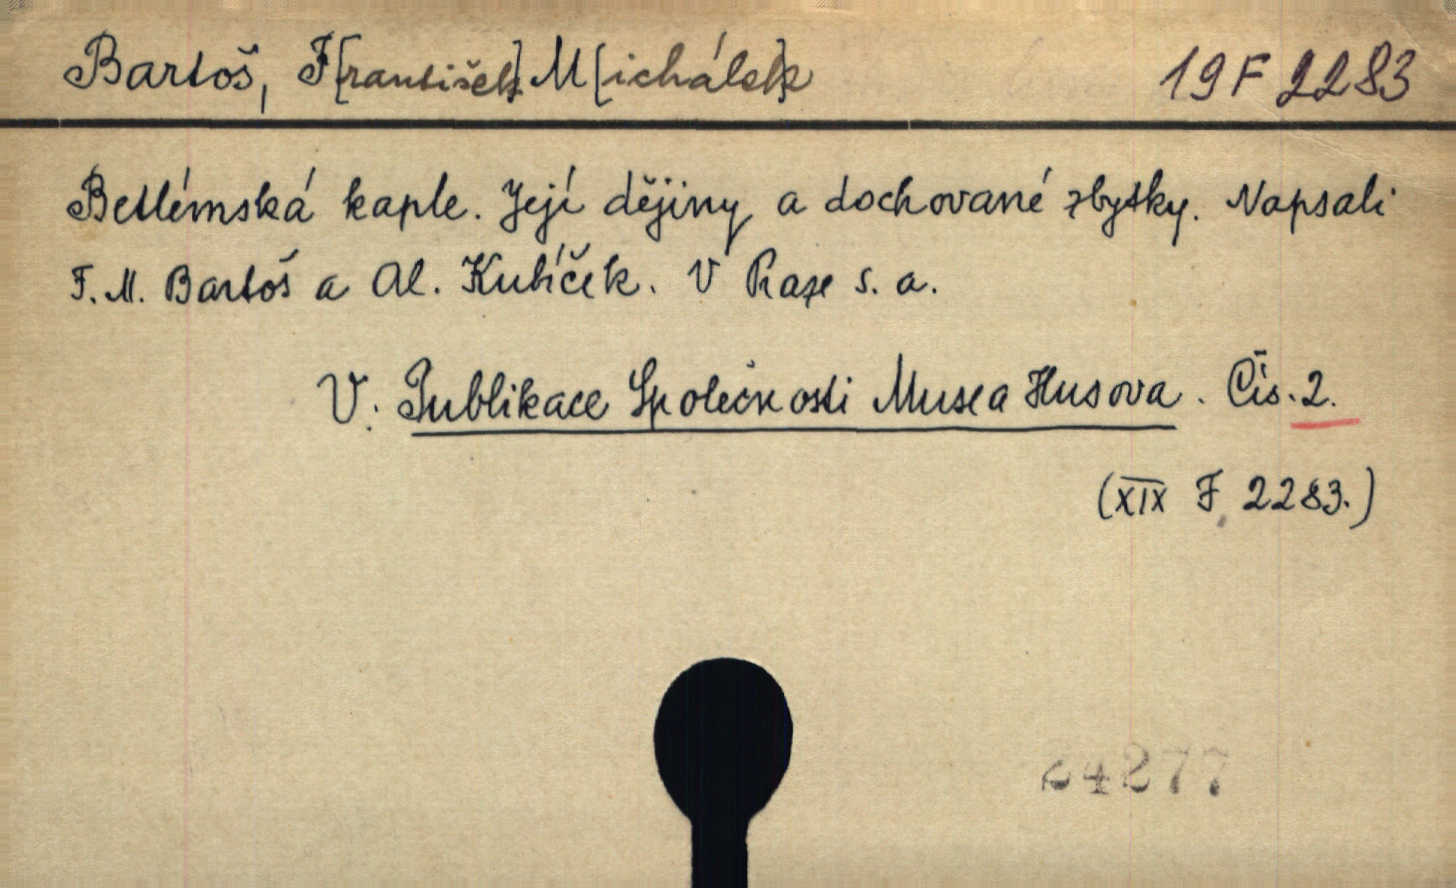 Bartoš, F[rantišek] M[ichálek] 19 F 2283
Betlémská kaple. Její dějiny a dochované zbytky. Napsali
F. M. Bartoš a Al. Kubíček. V Praze s. a.
V: Publikace Společnosti Musea Husova. Čís. 2.
(XIX F 2283.)
24277